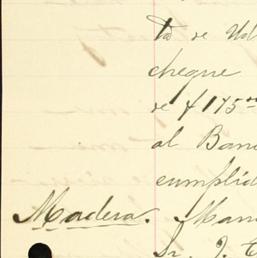 de Ud
cheque
de $175
al Ban
cumplid
Madera. Man
Sr. J. E